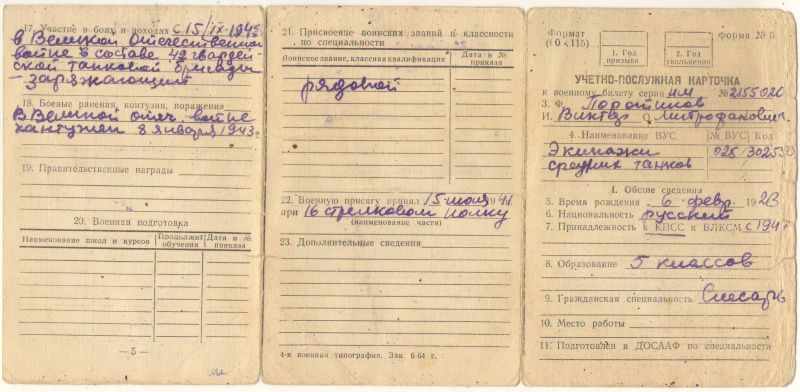 17. Участие в боях и походах с 15/IX-1942
в Великой Отечественной
войне в составе 49 гвардей
ской танковой бригады
- заряжающий
18. Боевые ранения, контузии, поражения
В Великой отеч. войне
контужен 8 января 1943г.
19. Правительственные награды
20. Военная подготовка
Наименование школ и курсов
Продолжит. обучения
Дата и № приказа
— 5 —
21. Присвоение воинских званий и классности
по специальности
Воинское звание, классная квалификация
Дата и № приказа
рядовой
22. Военную присягу принял 15 июля 1941
при 16 стрелковом полку
(наименование части)
23. Дополнительные сведения
4-я военная типография. Зак. 6-64 г.
Формат
(80 х 115)
1. Год призыва
2. Год увольнения
Форма № 6
УЧЕТНО-ПОСЛУЖНАЯ КАРТОЧКА
к военному билету серии НМ № 2155020
3. Ф. Поротиков
И. Виктор О. Митрофанович
4. Наименование ВУС
№ ВУС
Код
Экипажи
средних танков
025/3025
I. Общие сведения
5. Время рождения 6 февр. 1923
6. Национальность русский
7. Принадлежность к КПСС и ВЛКСМ с 194
8. Образование 5 классов
9. Гражданская специальность Слесарь
10. Место работы
11. Подготовлен в ДОСААФ по специальности